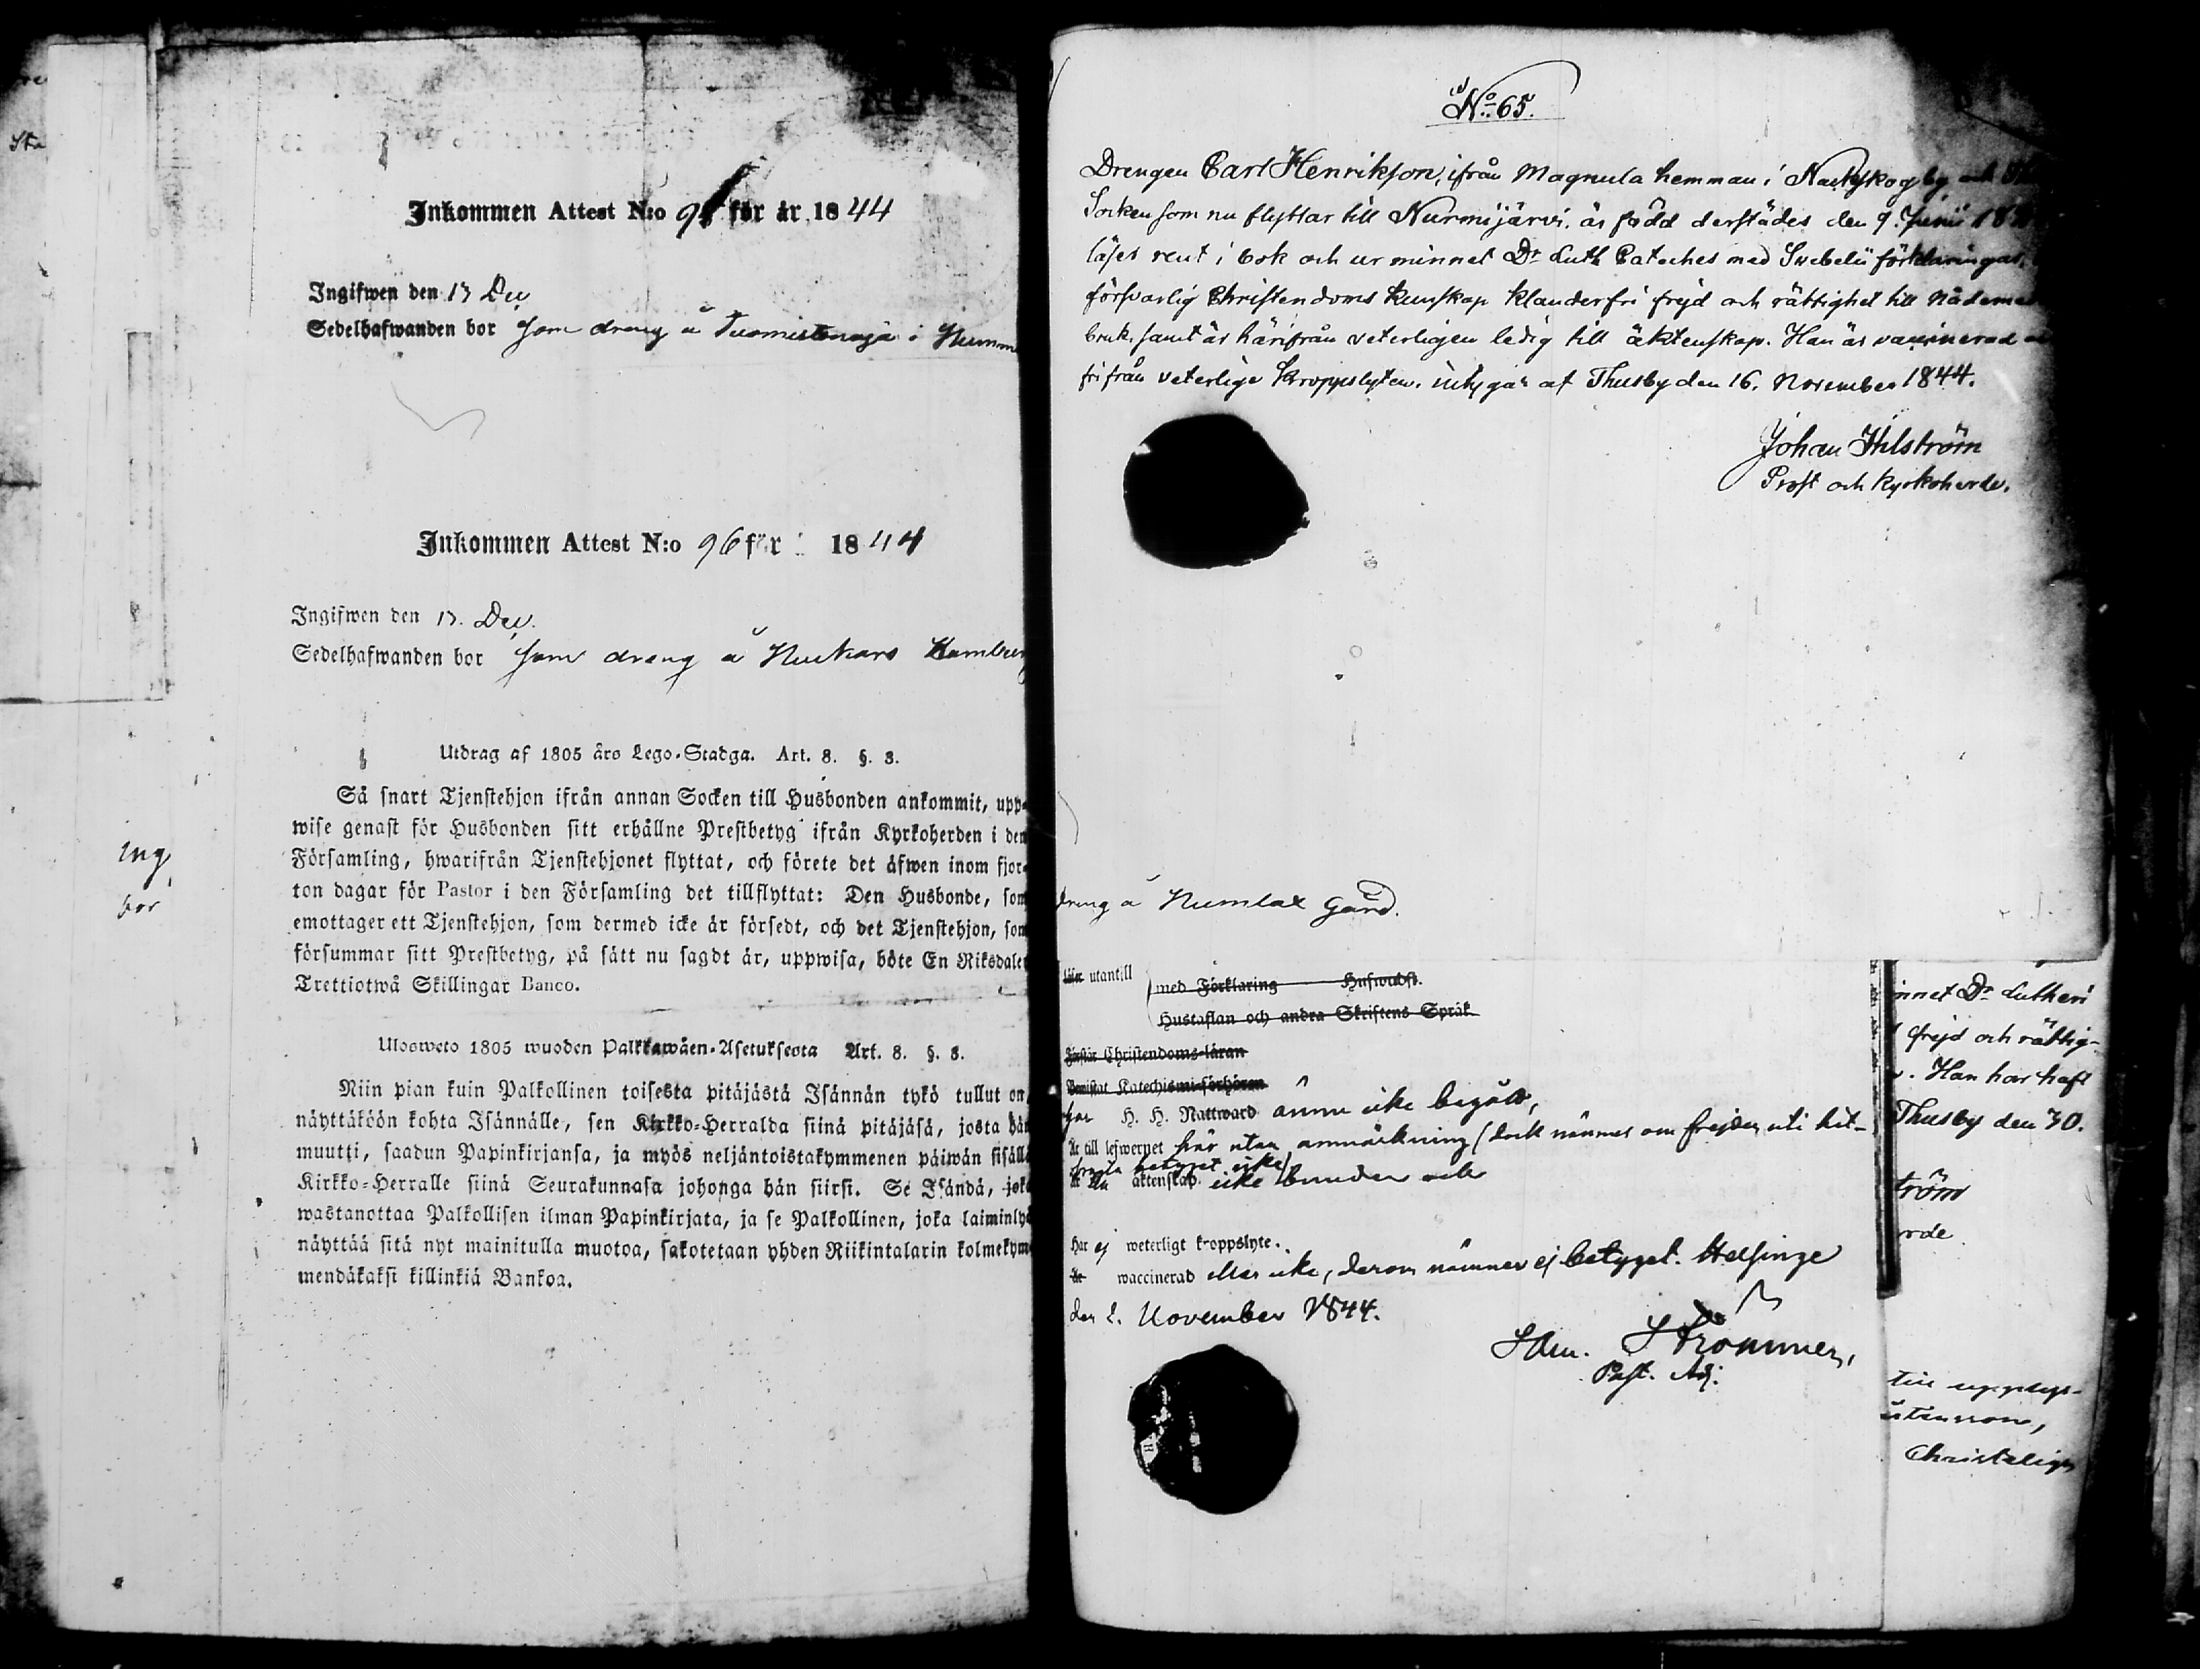 Inkommen Attest N:o 9 för år 1844
Ingifwen den 13 Dec
Sedelhafwanden bor som dreng å Tuomistonoja i
Inkommen Attest N:o 96 för 1844
Ingifwen den 13. Dec.
Sedelhafwanden bor som dreng å Nuckars
Utdrag af 1805 års Lego-Stadga. Art. 8. §. 3.
Så snart Tjenstehjon ifrån annan Socken till Husbonden ankommit, upp-
wise genast för Husbonden sitt erhållne Prestbetyg ifrån Kyrkoherden i den
Församling, hwarifrån Tjenstehjonet flyttat, och förete det äfwen inom fjor-
ton dagar för Pastor i den Församling det tillflyttat: Den Husbonde, som
emottager ett Tjenstehjon, som dermed icke är försedt, och det Tjenstehjon, som
försummar sitt Prestbetyg, på sätt nu sagdt är, uppwisa, böte En Riksdaler
Trettiotwå Skillingar Banco.
Ulosweto 1805 wuoden Palkkawäen-Asetuksesta Art. 8. §. 3.
Niin pian kuin Palkollinen toisesta pitäjästä Isännän tykö tullut on,
näyttäköön kohta Isännälle, sen Kirkko-Herralda siinä pitäjäsä, josta hän
muutti, saadun Papinkirjansa, ja myös neljäntoistakymmenen päiwän sisällä
Kirkko-Herralle siinä Seurakunnasa johonga hän siirsi. Se Isändä, joka
wastanottaa Palkollisen ilman Papinkirjata, ja se Palkollinen, joka laiminlyö
näyttää sitä nyt mainitulla muotoa, sakotetaan yhden Riikintalarin kolmekym-
mendäkaksi killinkiä Bankoa.
ing
bor
No 65.
Drengen Carl Henrikson, ifrån Magnula hemman i Nackskogby och
Socken som nu flyttar till Nurmijärvi. är född derstädes den 9. Junii 18
läser rent i bok och ur minnet Dr Luth Cateches med Svebelii förklaringar,
försvarlig Christendoms kunskap klanderfri frejd och rättighet till Nådemed
bruk, samt är härifrån veterligen ledig till äktenskap. Han är vaccinerad
fri från veterlige kroppslyten. intygar af Thusby den 16. November 1844.
Johan Ihlström
Prost och Kyrkoherde.
dreng å Numlax gård.
läser utantill
med Förklaring Hufwudst.
Hustaflan och andra Skriftens Språk
Förstår Christendoms-läran
Bewistat Katechismi-förhören
har H. H. Nattward ännu icke begått,
Är till lefwernet här utan anmärkning (dock nämnes om frejden uti hit-
betyget icke)
Är till äktenskap icke bunden
Har ej weterligt kroppslyte.
Är waccinerad eller icke, derom nämner ej betyget. Helsinge
den 2. November 1844.
Strömmer,
Past. Adj.
innet Dr Lutheri
frejd och rättig-
Han har haft
Thusby den 30.
tröm
rde
till upplys-
Christelige